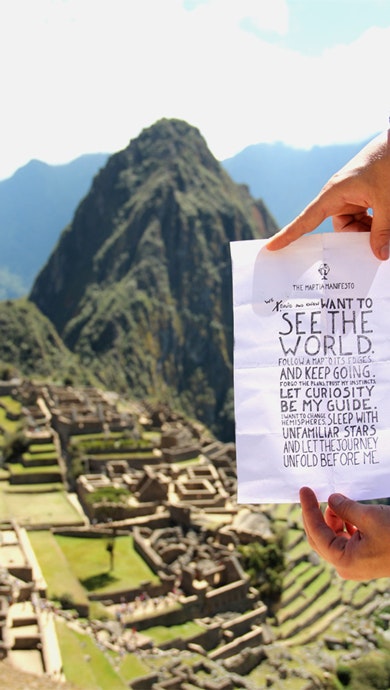 THE MAPTIA MANIFESTO
WE
I WANT TO
SEE THE
WORLD.
FOLLOW A MAP TO ITS EDGES,
AND KEEP GOING.
FORGO THE PLANS. TRUST MY INSTINCTS.
LET CURIOSITY
BE MY GUIDE.
I WANT TO CHANGE
HEMISPHERES SLEEP WITH
UNFAMILIAR STARS
AND LET THE JOURNEY
UNFOLD BEFORE ME.